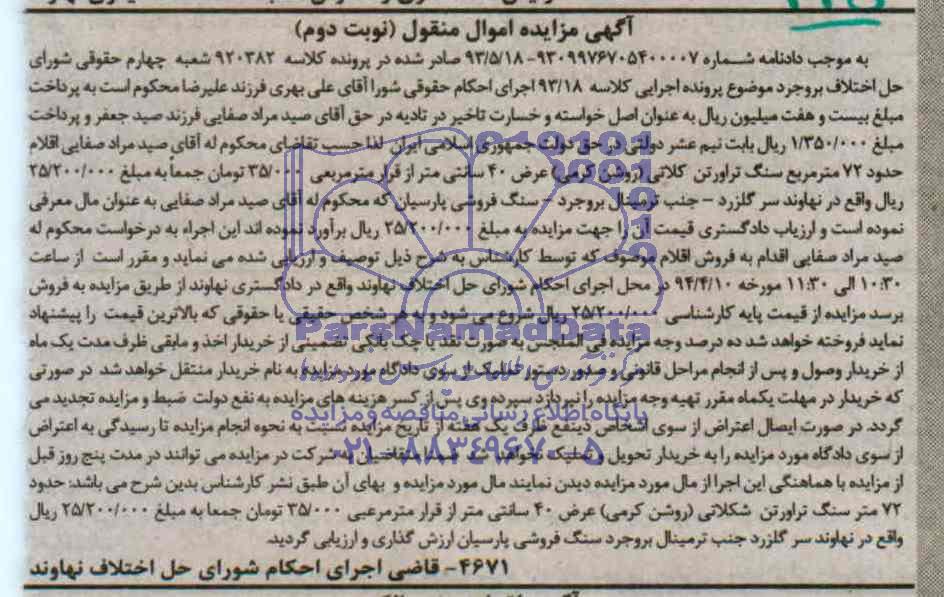 آگهی مزایده اموال منقول (نوبت دوم)
به موجب دادنامه شماره ۹۳۰۹۹۷۶۷۰۵۴۰۰۰۰۷-۹۳/۵/۱۸ صادر شده در پرونده کلاسه ۹۲۰۳۸۲ شعبه چهارم حقوقی شورای
حل اختلاف بروجرد موضوع پرونده اجرایی کلاسه ۹۳/۱۸ اجرای احکام حقوقی شورا آقای علی بهری فرزند علیرضا محکوم است به پرداخت
مبلغ بیست و هفت میلیون ریال به عنوان اصل خواسته و خسارت تاخیر در تادیه در حق آقای صید مراد صفایی فرزند صید جعفر و پرداخت
مبلغ ۱/۳۵۰/۰۰۰ ریال بابت نیم عشر دولتی در حق دولت جمهوری اسلامی ایران لذا حسب تقاضای محکوم له آقای صید مراد صفایی اقلام
حدود ۷۲ مترمربع سنگ تراورتن کلاتی (روشن کرمی) عرض ۴۰ سانتی متر از قرار مترمربعی ۳۵/۰۰۰ تومان جمعاً به مبلغ ۲۵/۲۰۰/۰۰۰
ریال واقع در نهاوند سر گلزرد - جنب ترمینال بروجرد - سنگ فروشی پارسیان که محکوم له آقای صید مراد صفایی به عنوان مال معرفی
نموده است و ارزیاب دادگستری قیمت آن را جهت مزایده به مبلغ ۲۵/۲۰۰/۰۰۰ ریال برآورد نموده اند این اجراء به درخواست محکوم له
صید مراد صفایی اقدام به فروش اقلام موصوف که توسط کارشناس به شرح ذیل توصیف و ارزیابی شده می نماید و مقرر است از ساعت
۱۰:۳۰ الی ۱۱:۳۰ مورخه ۹۴/۴/۱۰ در محل اجرای احکام شورای حل اختلاف نهاوند واقع در دادگستری نهاوند از طریق مزایده به فروش
برسد مزایده از قیمت پایه کارشناسی ۲۵/۲۰۰/۰۰۰ ریال شروع می شود و به هر شخص حقیقی یا حقوقی که بالاترین قیمت را پیشنهاد
نماید فروخته خواهد شد ده درصد وجه مزایده فی المجلس به صورت نقد یا چک بانکی تضمینی از خریدار اخذ و مابقی ظرف مدت یک ماه
از خریدار وصول و پس از انجام مراحل قانونی و صدور دستور تملیک از سوی دادگاه مورد مزایده به نام خریدار منتقل خواهد شد در صورتی
که خریدار در مهلت یکماه مقرر تهیه وجه مزایده را نپردازد سپرده وی پس از کسر هزینه های مزایده به نفع دولت ضبط و مزایده تجدید می
گردد. در صورت ایصال اعتراض از سوی اشخاص ذینفع ظرف یک هفته از تاریخ مزایده نسبت به نحوه انجام مزایده تا رسیدگی به اعتراض
از سوی دادگاه مورد مزایده را به خریدار تحویل و تملیک نخواهد شد ضمنا متقاضیان به شرکت در مزایده می توانند در مدت پنج روز قبل
از مزایده با هماهنگی این اجرا از مال مورد مزایده دیدن نمایند مال مورد مزایده و بهای آن طبق نشر کارشناس بدین شرح می باشد: حدود
۷۲ متر سنگ تراورتن شکلاتی (روشن کرمی) عرض ۴۰ سانتی متر از قرار مترمربعی ۳۵/۰۰۰ تومان جمعا به مبلغ ۲۵/۲۰۰/۰۰۰ ریال
واقع در نهاوند سر گلزرد جنب ترمینال بروجرد سنگ فروشی پارسیان ارزش گذاری و ارزیابی گردید.
۴۶۷۱- قاضی اجرای احکام شورای حل اختلاف نهاوند
ParsNamadData
پایگاه اطلاع رسانی مناقصه و مزایده
۰۲۱-۸۸۳۴۹۶۷۰-۵